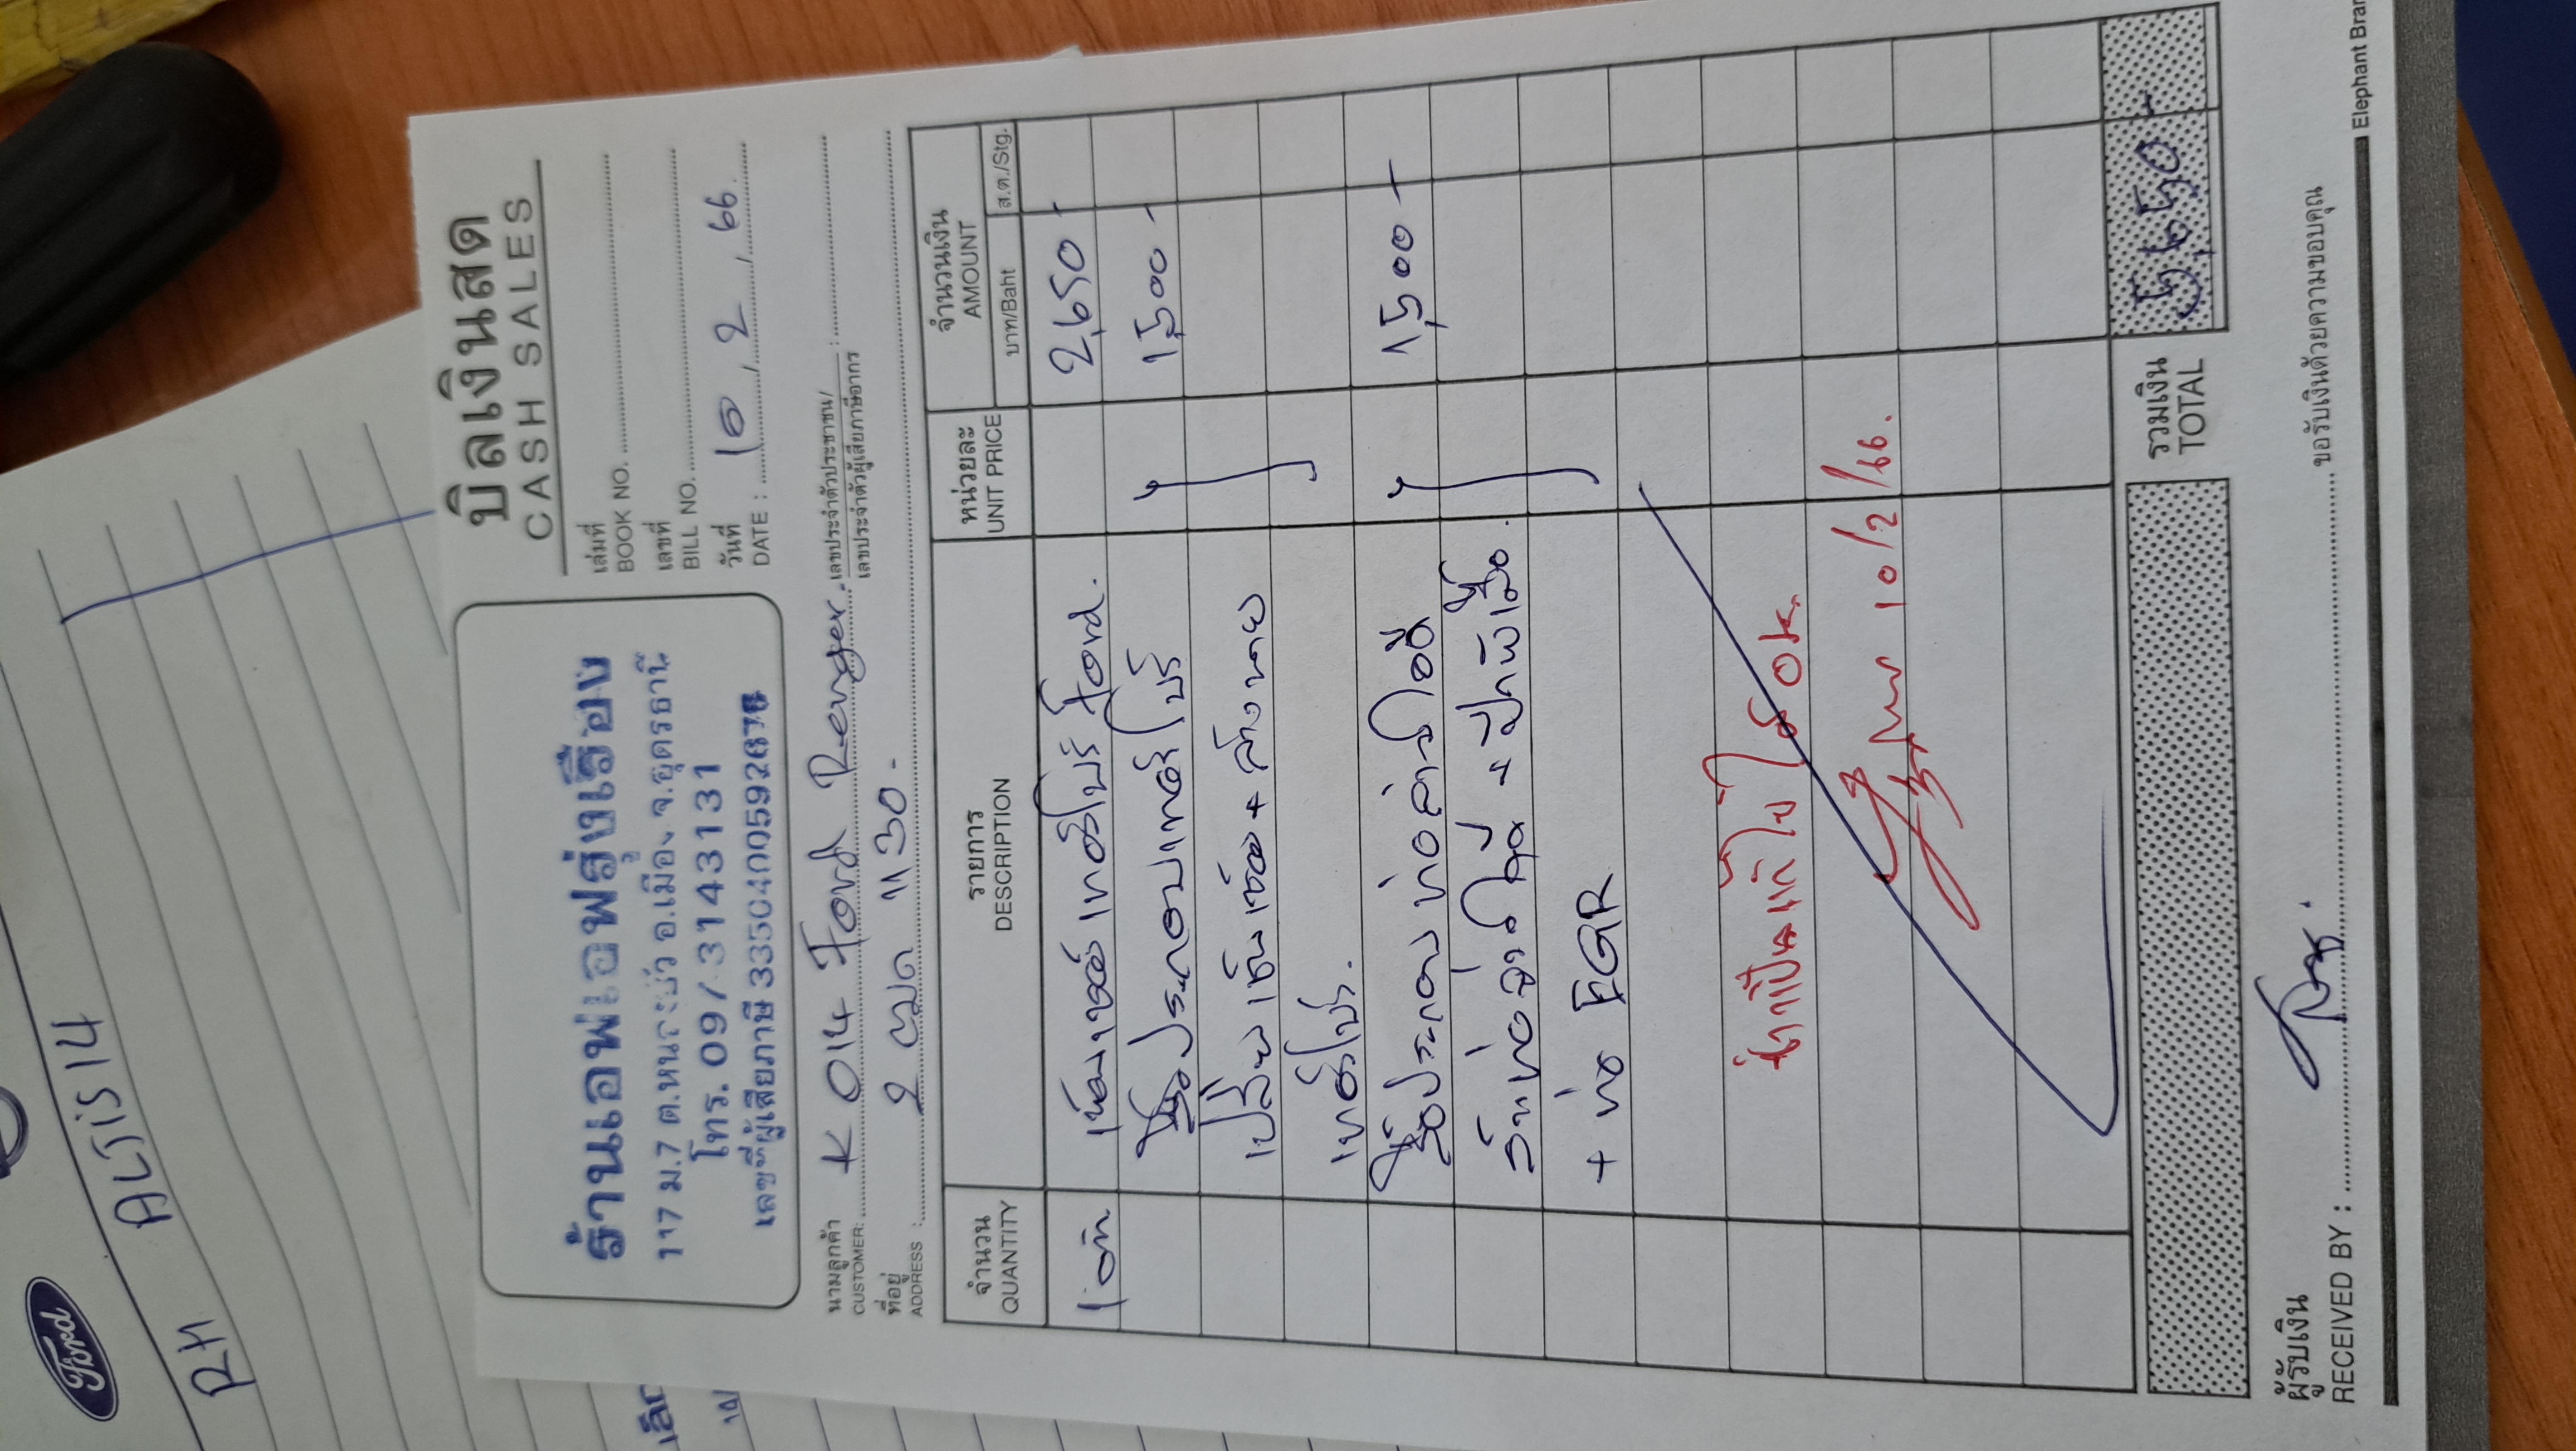 Ford
RH ALTIS 14
บิลเงินสด
CASH SALES
ร้านเอฟเอฟรุ่งเรือง
117 ม.7 ต.หนองบัว อ.เมือง จ.อุดรธานี
โทร. 09/ 3143131
เลขที่ผู้เสียภาษี 3350400592676
เล่มที่
BOOK NO.
เลขที่
BILL NO.
วันที่
DATE : 10, 2, 66
นามลูกค้า K 014 Ford Renger.
CUSTOMER:
เลขประจำตัวประชาชน/
เลขประจำตัวผู้เสียภาษีอากร :
ที่อยู่ 2 ฒด 1130.
ADDRESS :
จำนวน รายการ หน่วยละ จำนวนเงิน
QUANTITY DESCRIPTION UNIT PRICE AMOUNT
บาท/Baht ส.ต./Stg.
เทอร์โบร์ Ford. 2,650 -
ประกอบเทอร์โบร์ 1,500 -
เปลี่ยน + ล้าง
เทอร์โบร์.
ประกอบท่อล่างไอดี 1,500 -
ล้างท่อล่างไอดี + ปีกผีเสื้อ.
+ ท่อ EGR
นำเป็นแก้ไข ใช้ ok.
10/2/66.
รวมเงิน 5,650 -
TOTAL
ผู้รับเงิน
RECEIVED BY : ขอรับเงินด้วยความขอบคุณ
Elephant Bran